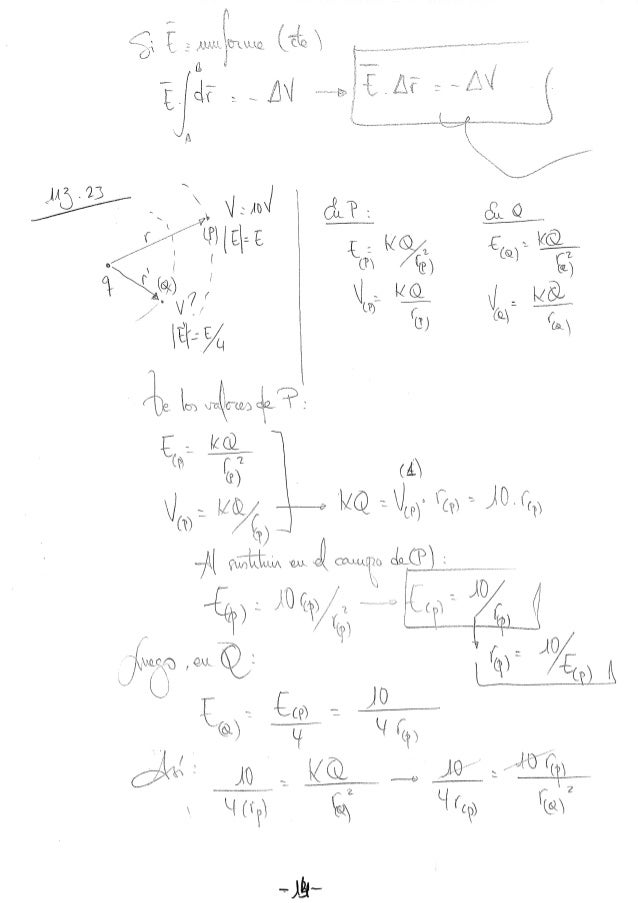 Si E̅ = uniforme (cte)
E̅ · ∫_A^B dr̅ = - ΔV → E̅ . Δr̅ = - ΔV
113.23
V = 10V
r (P) |E| = E
q r' (Q)
V?
|E'| = E/4
En P:
E(P) = KQ/r(P)²
V(P) = KQ/r(P)
En Q
E(Q) = KQ/r(Q)²
V(Q) = KQ/r(Q)
De los valores de P:
E(P) = KQ/r(P)²
V(P) = KQ/r(P) → KQ = V(P) · r(P) = 10 . r(P)
(1)
Al sustituir en el campo de (P):
E(P) = 10 r(P)/r(P)² → E(P) = 10/r(P)
r(P) = 10/E(P)
Luego, en Q:
E(Q) = E(P)/4 = 10/4 r(P)
Así: 10/4(rp) = KQ/r(Q)² → 10/4 r(P) = 10 r(P)/r(Q)²